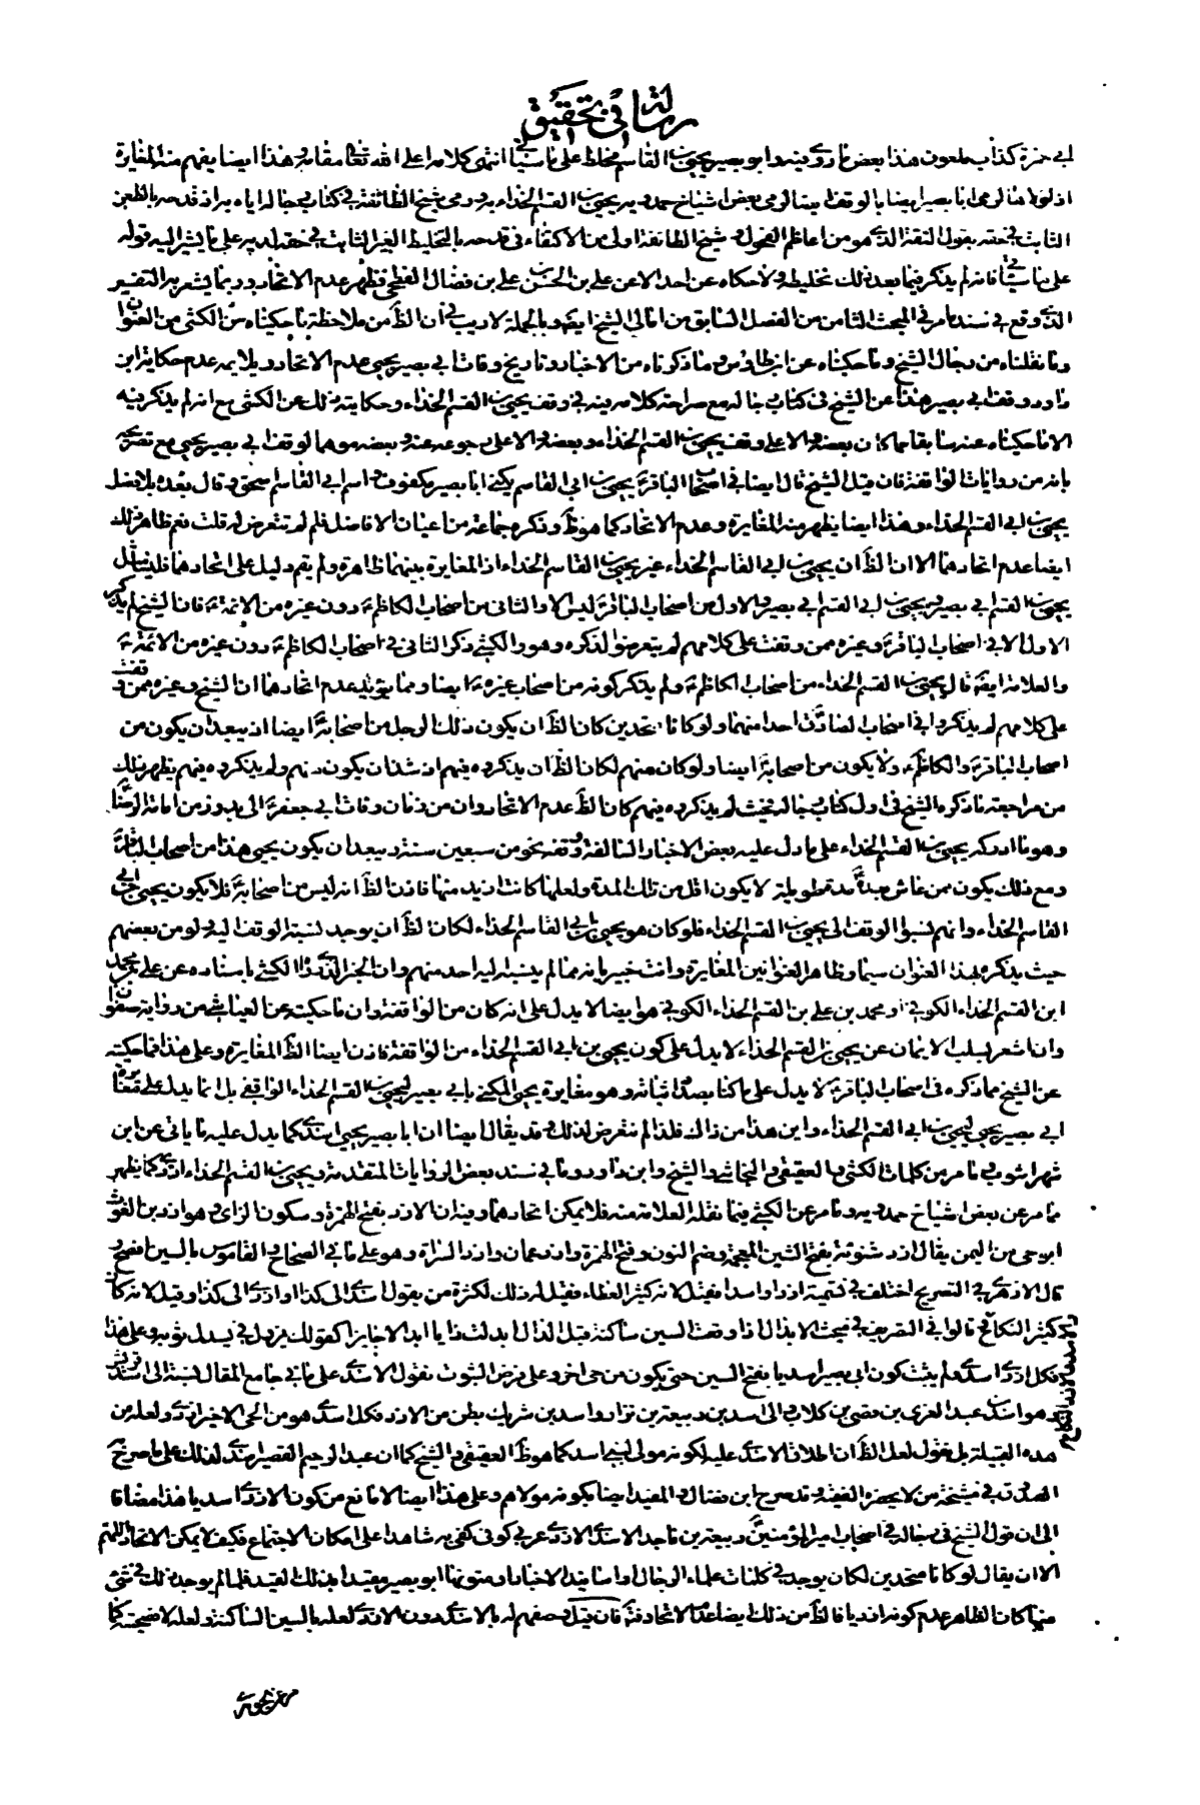 رسالة في تحقيق
ابي حمزة كذاب ملعون هذا بعض ما روي فيه وابو بصير يحيى بن القاسم مخلط على ما سيأتي انتهى كلامه اعلى الله تعالى مقامه وهذا ايضا يفهم منه المغايرة
اذ لولا هنا لرمى ابا بصير ايضا بالوقف ايضا لرمي بعض اشياخ حمدويه يحيى بن القسم الحذاء به ورمي شيخ الطائفة في كتاب رجاله اياه به اذ قدحه بالطعن
الثابت في حقه بقول الثقة الذي هو من اعاظم الفحول وشيخ الطائفة اولى من الاكتفاء في قدحه بالتخليط الغير الثابت في حقه لديه على ما يشير اليه قوله
على ما سيأتي فانه لم يذكر فيما بعد ذلك تخليطه ولا حكاه عن احد الا عن علي بن الحسن علي بن فضال الفطحي فظهر عدم الاتحاد وربما يشعر به التفسير
الذي وقع في سند ما مر في المبحث الثامن من الفصل السابق من امالي الشيخ ايضه وبالجملة لا ريب في ان الظ من ملاحظة ما حكيناه من الكشي من العنوان
وما نقلناه من رجال الشيخ وما حكيناه عن ابن طاوس وما ذكرناه من الاخبار وتاريخ وفات ابي بصير يحيى عدم الاتحاد ويلايمه عدم حكاية ابن
داود وقف ابي بصير هذا عن الشيخ في كتاب رجاله مع صراحة كلامه فيه في وقف يحيى بن القسم الحذاء وحكايته ذلك عن الكشي مع انه لم يذكر فيه
الا ما حكيناه عنه سابقا مما كان بعضه دالا على وقف يحيى بن القسم الحذاء وبعضه دالا على رجوعه عنه وبعضه موهما لوقف ابي بصير يحيى مع تصريحه
بانه من روايات الواقفة فان قيل الشيخ قال ايضا في اصحاب الباقر يحيى بن ابي القاسم يكنى ابا بصير مكفوف واسم ابي القاسم اسحق وقال بعده بلا فصل
يحيى بن ابي القسم الحذاء وهذا ايضا يظهر منه المغايرة وعدم الاتحاد كما هو ظ وذكره جماعة من اعيان الافاضل فلم لم تتعرض له قلت نعم ظاهر ذلك
ايضا عدم اتحادهما الا ان الظ ان يحيى بن ابي القاسم الحذاء غير يحيى بن القاسم الحذاء اذ المغايرة بينهما ظاهرة ولم يقم دليل على اتحادهما فليتأمل مثل
يحيى بن القسم ابي بصير ويحيى بن ابي القسم ابي بصير والاول من اصحاب الباقر ليس الا والثاني من اصحاب الكاظم دون غيره من الائمة فان الشيخ لم يذكر
الاول الا في اصحاب الباقر وغيره ممن وقفت على كلامهم لم يتعرضوا لذكره وهو والكشي ذكر الثاني في اصحاب الكاظم دون غيره من الائمة
والعلامة ايضه قال يحيى بن القسم الحذاء من اصحاب الكاظم ولم يذكر كونه من اصحاب غيره ايضا ومما يؤيد عدم اتحادهما ان الشيخ وغيره ممن وقفت
على كلامهم لم يذكروا في اصحاب الصادق احدا منهما ولو كانا متحدين كان الظ ان يكون ذلك الرجل من اصحابه ايضا اذ يبعد ان يكون من
اصحاب الباقر والكاظم ولا يكون من اصحابه ايضا ولو كان منهم لكان الظ ان يذكروه فيهم اذ شذ ان يكون منهم ولم يذكروه فيهم يظهر ذلك
من مراجعة ما ذكره الشيخ في اول كتاب رجاله فحيث لم يذكروه فيهم كان الظ عدم الاتحاد وان من زمان وفات ابي جعفر الى بدو زمن امامة الرضا
وهو ما ادركه يحيى بن القسم الحذاء على ما دل عليه بعض الاخبار السالفة وقفه نحو من سبعين سنة ويبعد ان يكون يحيى هذا من اصحاب الباقر
ومع ذلك يكون ممن عاش بعده مدة طويلة لا يكون اقل من تلك المدة ولعلها كانت ازيد منها فاذن الظ انه ليس من اصحابه فلا يكون يحيى بن ابي
القاسم الحذاء وانهم نسبوا الوقف الى يحيى بن القسم الحذاء فلو كان هو يحيى بن ابي القاسم الحذاء لكان الظ ان يوجد نسبة الوقف اليه ولو من بعضهم
حيث يذكره بهذا العنوان سيما وظاهر العنوانين المغايرة وانت خبير بانه مما لم ينسبه اليه احد منهم وان الخبر الذي رواه الكشي باسناده عن علي بن محمد
ابن القسم الحذاء الكوفي او محمد بن علي بن القسم الحذاء الكوفي هو ايضا لا يدل على انه كان من الواقفة وان ما حكيته عن العياشي من رواية صفوان
وان اشعر بسلب الايمان عن يحيى بن القسم الحذاء لا يدل على كون يحيى بن ابي القسم الحذاء من الواقفة فاذن ايضا الظ المغايرة وعلى هذا فما حكيته
عن الشيخ مما ذكره في اصحاب الباقر لا يدل على ما كنا بصدد اثباته وهو مغايرة يحيى المكنى بابي بصير ليحيى بن القسم الحذاء الواقفي بل انما يدل على مغايرة
ابي بصير يحيى ليحيى بن ابي القسم الحذاء واين هذا من ذاك فلذا لم نتعرض لذلك وقد يقال ايضا ان ابا بصير يحيى اسدي كما يدل عليه ما ياتي عن ابن
شهراشوب وما مر من كلمات الكشي والعقيقي والنجاشي والشيخ وابن داود وما في سند بعض الروايات المتقدمة ويحيى بن القسم الحذاء ازدي كما يظهر
مما مر عن بعض اشياخ حمدويه وما مر عن الكشي فيما نقله العلامة منه فلا يمكن اتحادهما وفيه ان الازد بفتح الهمزة وسكون الزاي وهو ازد بن الغوث
ابو حي من اليمن يقال ازد شنوئة بفتح الشين المعجمة وضم النون وفتح الهمزة وازد عمان وازد السراة وهو على ما في الصحاح والقاموس بالسين افصح و
قال الازهري في التصريح اختلف في تسميته ازدا واسدا فقيل لانه كثير العطاء فقيل له ذلك لكثرة من يقول اسدى الي كذا او ازدى الي كذا وقيل لانه كان
كثير النكاح وقالوا في التصريف في مبحث الابدال اذا وقعت السين ساكنة قبل الدال ابدلت زايا ابدالا جايزا كقولك يزدل في يسدل ثوبه وعلى هذا
فكل ازدي اسدي ولم يثبت كون ابي بصير اسديا بفتح السين حتى يكون من حي اخر وعلى فرض الثبوت نقول الاسدي على ما في جامع المقال نسبة الى اسد قريش
وهو اسد بن عبد العزى بن قصي بن كلاب والى اسد بن ربيعة بن نزار واسد بن شريك بطن من الازد فكل اسدي هو من الحي الاخير ازدي ولعله من
هذه القبيلة بل نقول لعل الظ ان اطلاق الاسدي عليه لكونه مولى لبني اسد كما هو ظ العقيقي والشيخ كما ان عبد الرحيم القصير اسدي لذلك على ما صرح به
الصدوق في مشيخته من لا يحضره الفقيه وقد صرح ابن فضال والمفيد ايضا بكونه مولاهم وعلى هذا ايضا لا مانع من كون الازدي اسديا هذا مضافا
الى ان قول الشيخ في رجاله في اصحاب امير المؤمنين ربيعة بن ناجد الاسدي الازدي عربي كوفي كفى به شاهدا على امكان الاجتماع فكيف لا يمكن الاتحاد اللهم
الا ان يقال لو كانا متحدين لكان يوجد في كلمات علماء الرجال واسانيد الاخبار او متونها ابو بصير مقيدا بذلك القيد فلما لم يوجد ذلك في شيء
منها كان الظاهر عدم كونه ازديا فالظ من ذلك ايضا عدم الاتحاد فتأمل فان قيل وصفهم له بالاسدي دون الازدي لعله بالسين الساكنة ولعله لافصحيته كما